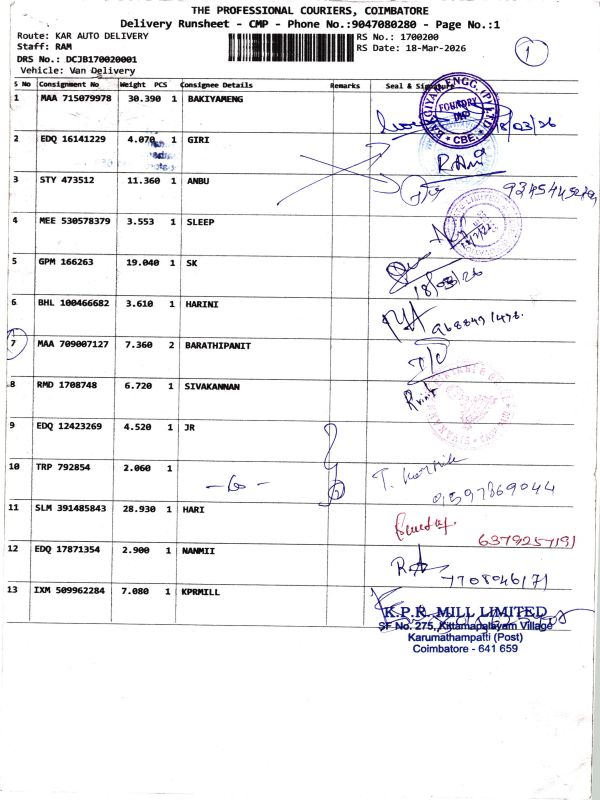 THE PROFESSIONAL COURIERS, COIMBATORE
Delivery Runsheet - CMP - Phone No.:9047080280 - Page No.:1
Route: KAR AUTO DELIVERY RS No.: 1700200
Staff: RAM RS Date: 18-Mar-2026
DRS No.: DCJB170020001
Vehicle: Van Delivery
1
S No Consignment No Weight PCS Consignee Details Remarks Seal & Signature
1 MAA 715079978 30.390 1 BAKIYAMENG
FOUNDRY
CBE
18/03/26
2 EDQ 16141229 4.070 1 GIRI
3 STY 473512 11.360 1 ANBU
4 MEE 530578379 3.553 1 SLEEP
5 GPM 166263 19.040 1 SK
18/03/26
6 BHL 100466682 3.610 1 HARINI
7 MAA 709007127 7.360 2 BARATHIPANIT
8 RMD 1708748 6.720 1 SIVAKANNAN
9 EDQ 12423269 4.520 1 JR
10 TRP 792854 2.060 1
T. Karthik
11 SLM 391485843 28.930 1 HARI
6379257191
12 EDQ 17871354 2.900 1 NANMII
13 IXM 509962284 7.080 1 KPRMILL
K.P.R. MILL LIMITED
SF No. 275, Kittampalayam Village
Karumathampatti (Post)
Coimbatore - 641 659